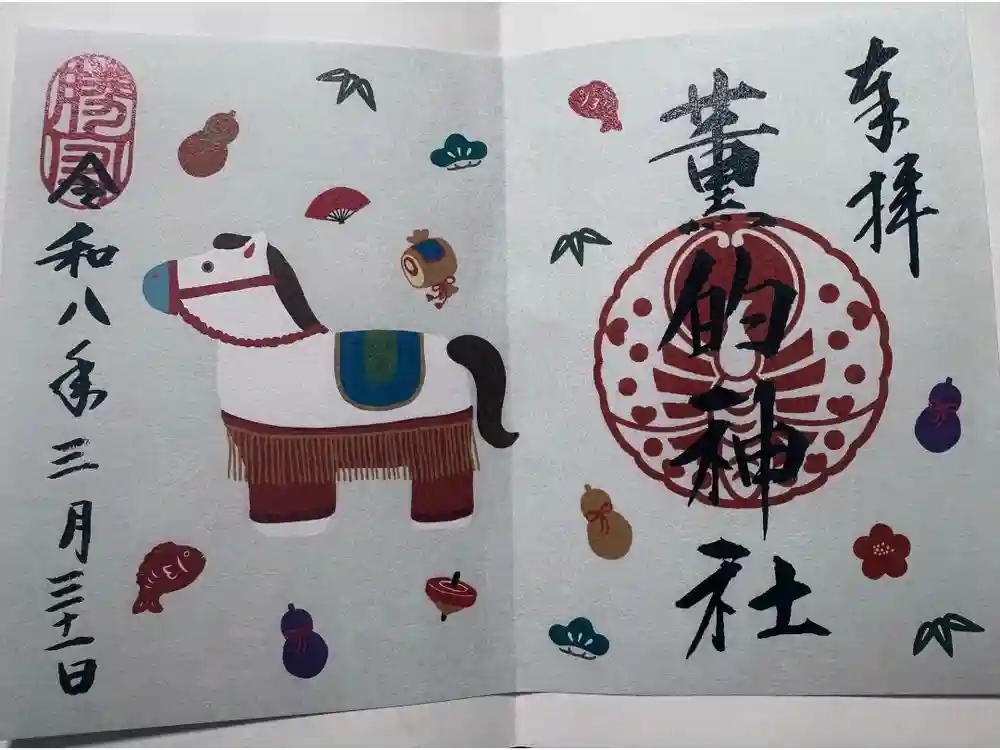 奉拝
薫的神社
令和八年三月三十一日